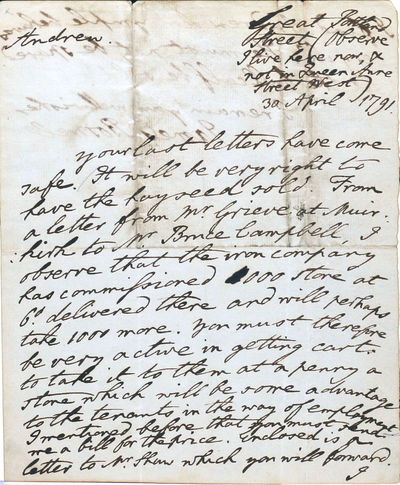 Andrew.
Great Portland
Street (Observe
I live here now, &
not in Queen Anne
Street West)
30 April 1791.
your last letters have come
safe. It will be very right to
have the hayseed sold. From
a letter from Mr Grieve at Muir:
:kirk to Mr Bruce Campbell, I
observe that the iron company
has commissioned 1000 stone at
6d delivered there and will perhaps
take 1000 more. you must therefore
be very active in getting carts
to take it to them at a penny a
stone which will be some advantage
to the tenants, in the way of employment
I mentioned before that you must send
me a bill for the price. Enclosed is a
letter to Mr Shaw which you will forward.
I